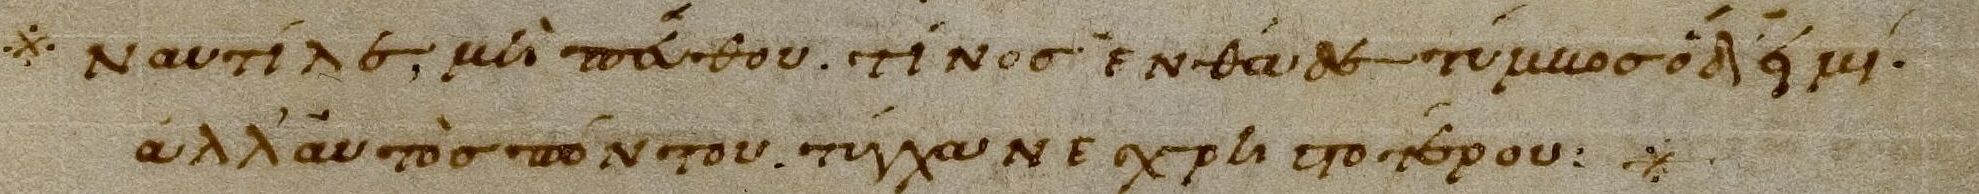 ※ ναυτίλε, μὴ πεύθου. τίνος ἐνθάδε τύμβος ὅδ' εἰμί.
ἀλλ' αὐτὸς πόντου. τύγχανε χρηστοτέρου: ※